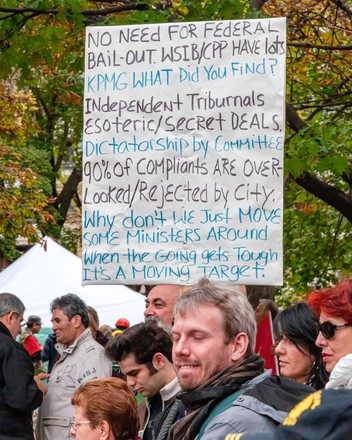 NO NEED FOR FEDERAL
BAIL-OUT. WSIB/CPP HAVE lots
KPMG WHAT Did You FiNd?
INdependent Triburnals
Esoteric/Secret DEALS.
Dictatorship by Committee
90% of Compliants ARE OVER-
Looked/Rejected by City.
Why don't WE Just MOVE
SOME Ministers Around
When the Going gets Tough
It's A MOVING TARGET.